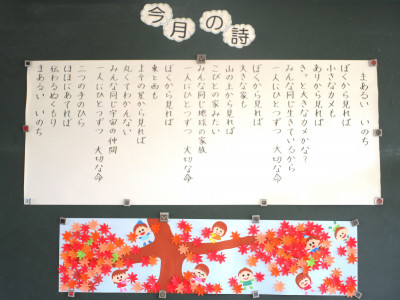 今月の詩
まあるい いのち
ぼくから見れば
小さなカメも
ありから見れば
きっと大きなカメかな？
みんな同じ生きているから
一人にひとつずつ 大切な命
ぼくから見れば
大きな家も
山の上から見れば
こびとの家みたい
みんな同じ地球の家族
一人にひとつずつ 大切な命
ぼくから見れば
東と西も
よその星から見れば
丸くてわかんない
みんな同じ宇宙の仲間
一人にひとつずつ 大切な命
二つの手のひら
ほほにあてれば
伝わるぬくもり
まあるい いのち